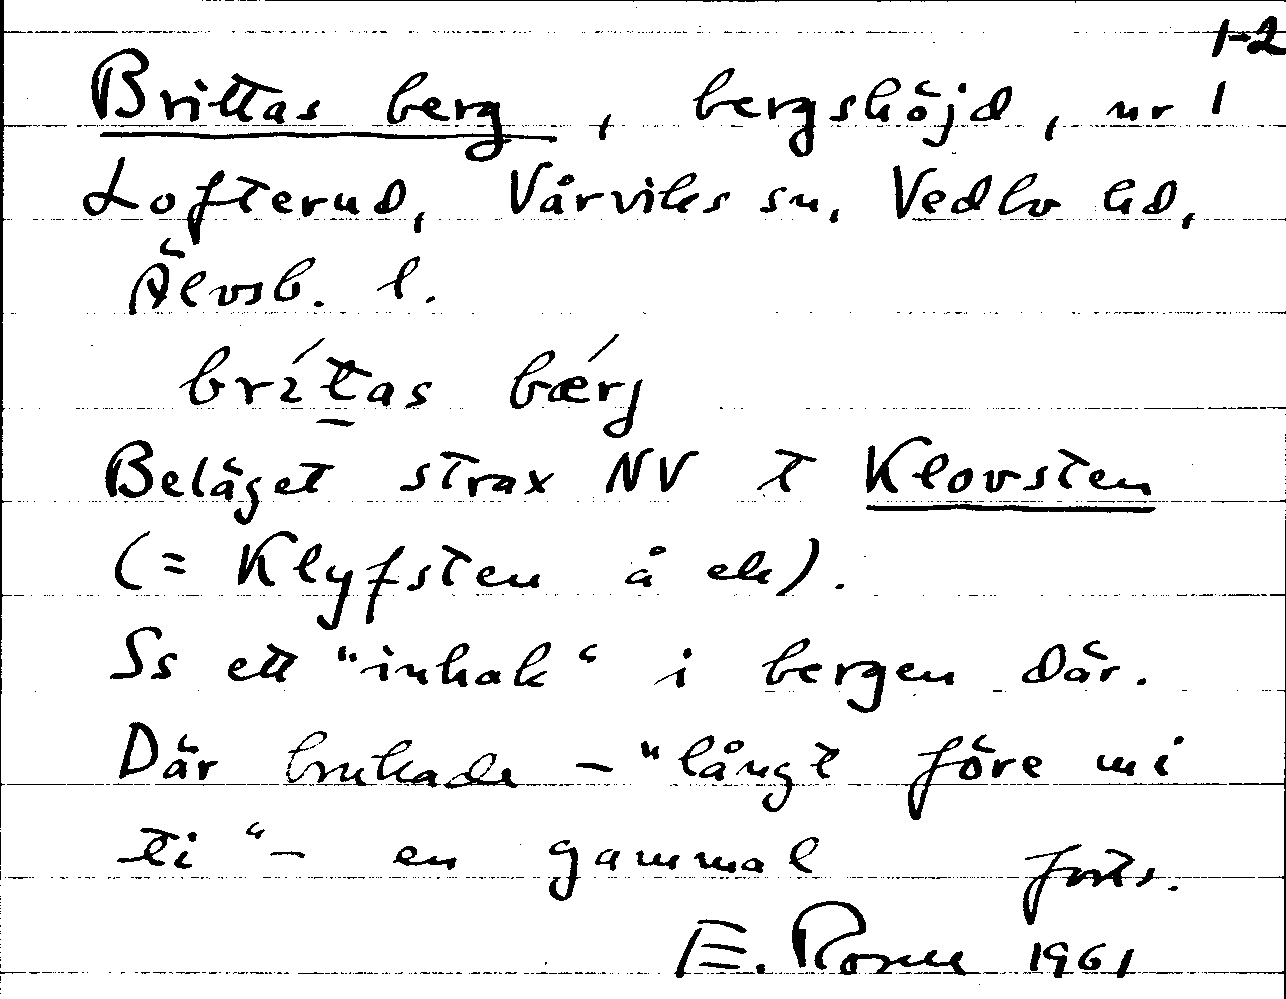 1-2
Brittas berg, bergshöjd, nr 1
Lofterud, Vårviks sn, Vedbo hd,
Älvsb. l.
brítas bǽrj
Beläget strax NV t Klovsten
(= Klyfsten å ek).
Ss ett "inhak" i bergen där.
Där brukade - "långt före mi
ti" - en gammal forts.
E. Rosén 1961